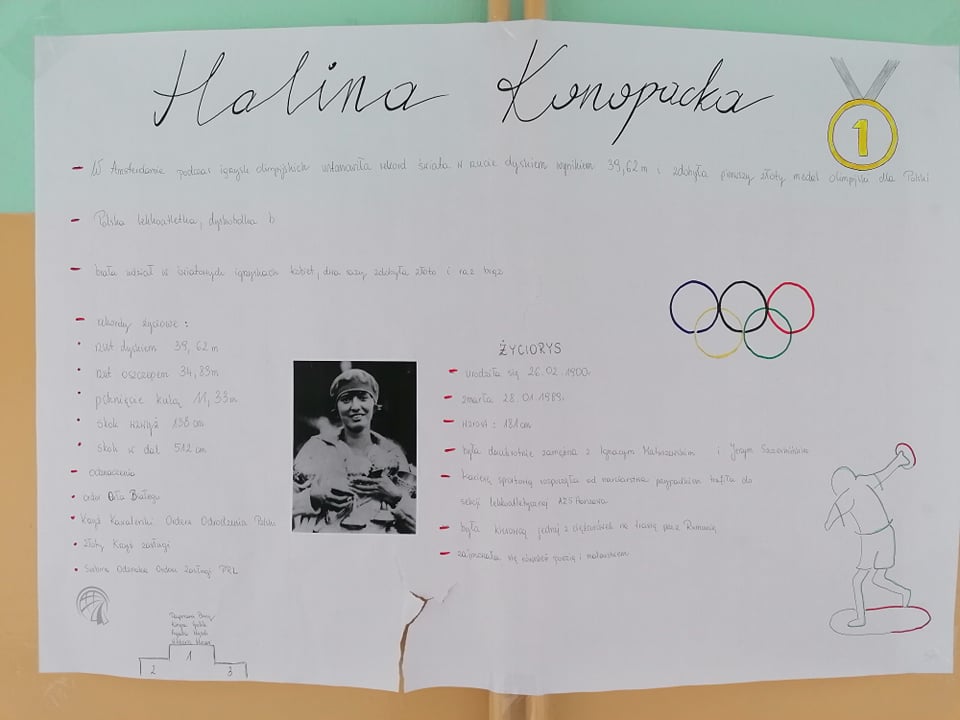 Halina Konopacka
1
- W Amsterdamie podczas igrzysk olimpijskich ustanowiła rekord świata w rzucie dyskiem wynikiem 39,62 m i zdobyła pierwszy złoty medal olimpijski dla Polski
- Polska lekkoatletka, dyskobolka
- brała udział w światowych igrzyskach kobiet, dwa razy zdobyła złoto i raz brąz
- rekordy życiowe:
• rzut dyskiem 39,62 m
• rzut oszczepem m
• pchnięcie kulą 11,33m
• skok wzwyż cm
• skok w dal 512 cm
- odznaczenia
• order Orła Białego
• Krzyż Kawalerski Orderu Odrodzenia Polski
• Złoty Krzyż zasługi
• Srebrna Odznaka Orderu zasługi PRL
ŻYCIORYS
- urodziła się 26.02.1900r
- zmarła 28.01.1989r
- wzrost: 181cm
- była dwukrotnie zamężna z Ignacym i Jerzym
- karierę sportową rozpoczęła od narciarstwa przypadkiem trafiła do
sekcji lekkoatletycznej AZS
- była kierowcą jednej z ciężarówek na trasie przez Rumunię
- zajmowała się również poezją i malarstwem
1
2 3